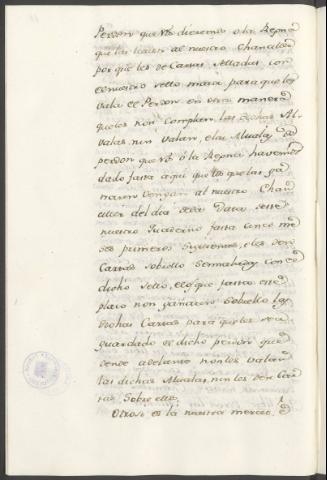 Perdon que Nos dieremos o la Reyna
que las lieven al nuestro Chanciller
por que les de Cartas selladas con
el nuestro sello maior para que les
vala el Perdon en otra manera
que les non complan las dichas Al
valas nin valan, e las Alvalas de
perdon que Nos o la Reyna havemos
dado fasta aqui que los que las ga
naron vengan al nuestro Chan
ciller del dia de la Data deste
nuestro Quaderno fasta cinco me
ses primeros siguientes, e les den
Cartas sobrello selladas con el
dicho sello, e los que fasta este
plazo non ganaren sobrello las
dichas Cartas para que les sea
guardado el dicho perdon que
dende adelante non les valan
las dichas Alvalas, nin les den Car
tas sobre ello.
Otrosi es la nuestra merced